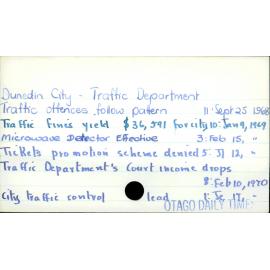 Dunedin City - Traffic Department
Traffic offences follow pattern 11: Sept 25 1968
Traffic fines yield $36,591 for city 10: Jan 9, 1969
Microwave Detector Effective 3: Feb 15, "
Tickets promotion scheme denied 5: Jl 12, "
Traffic Department's Court income drops
8: Feb 10, 1970
City traffic control lead 1: 17, "
OTAGO DAILY TIMES